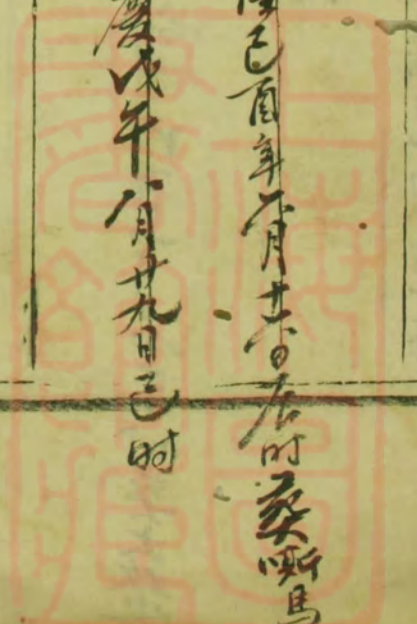 隆己酉年六月廿六日辰时葬嘶馬
慶戊午八月廿九日巳时